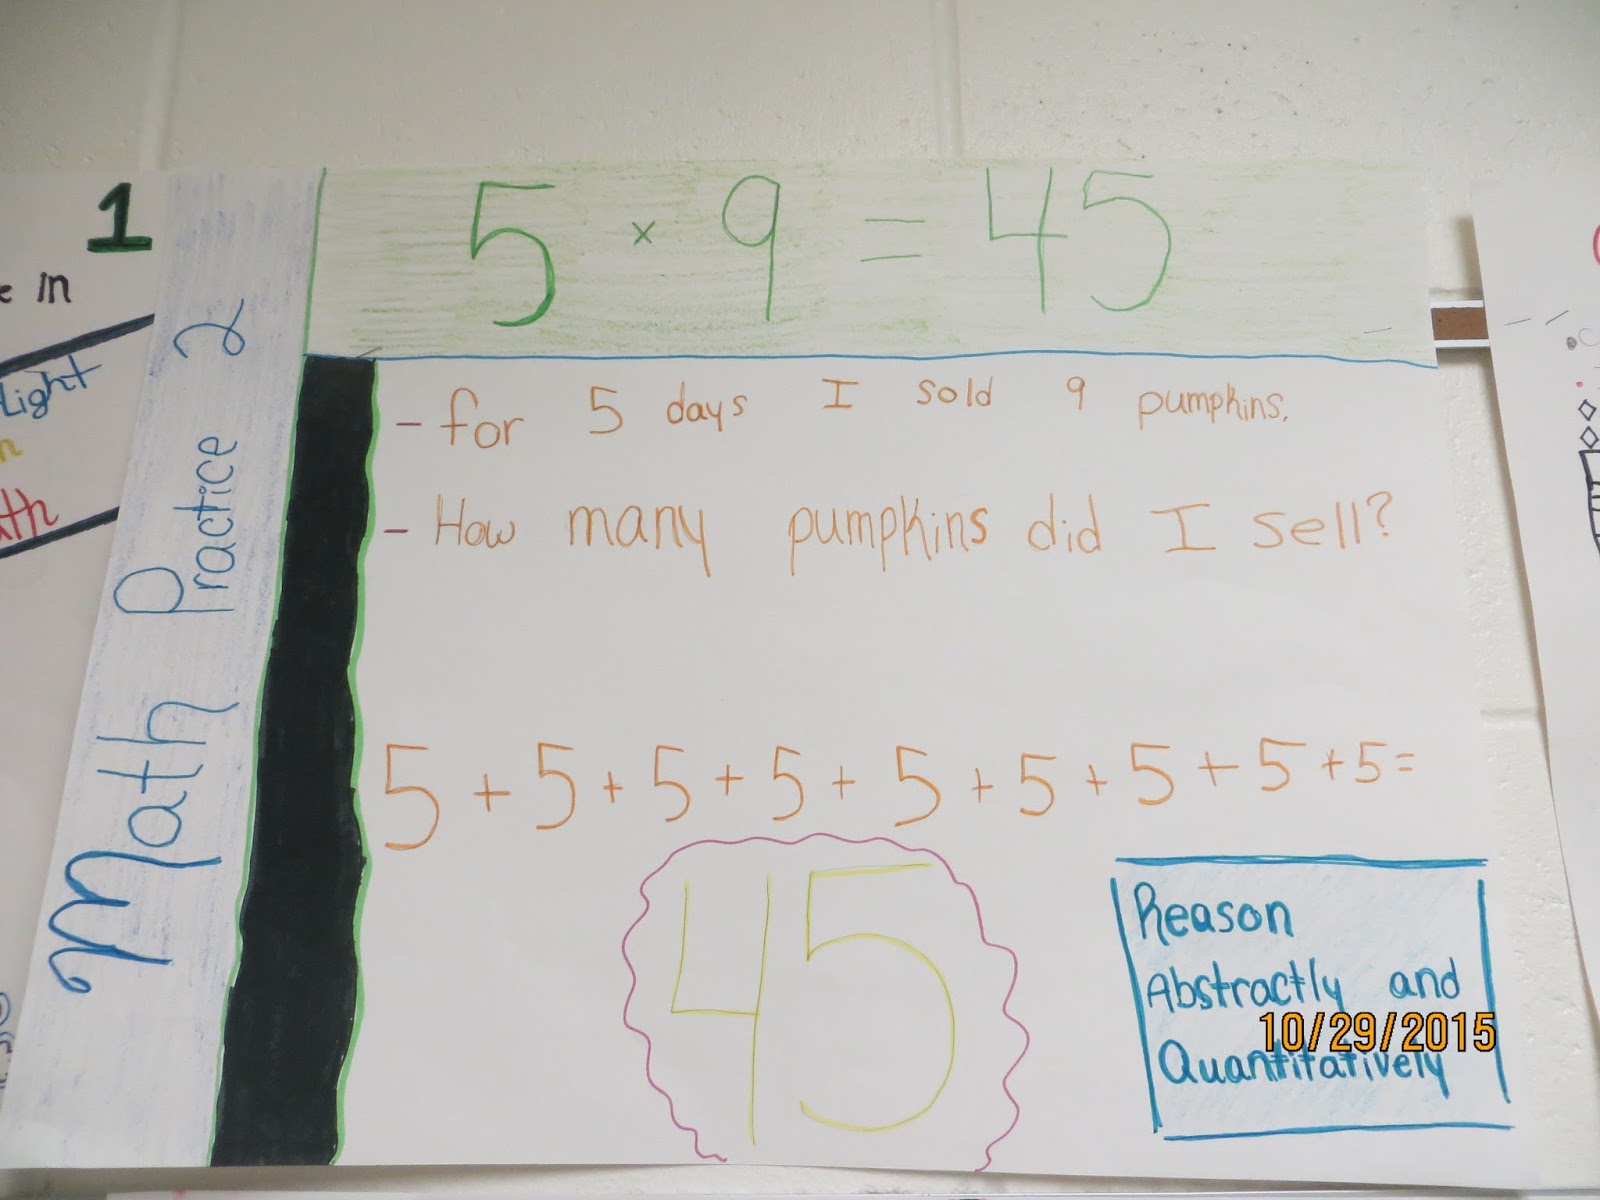 1
e in
Light
Math Practice 2
5 × 9 = 45
- for 5 days I sold 9 pumpkins.
- How many pumpkins did I sell?
5 + 5 + 5 + 5 + 5 + 5 + 5 + 5 + 5 =
45
Reason
Abstractly and
Quantitatively
10/29/2015